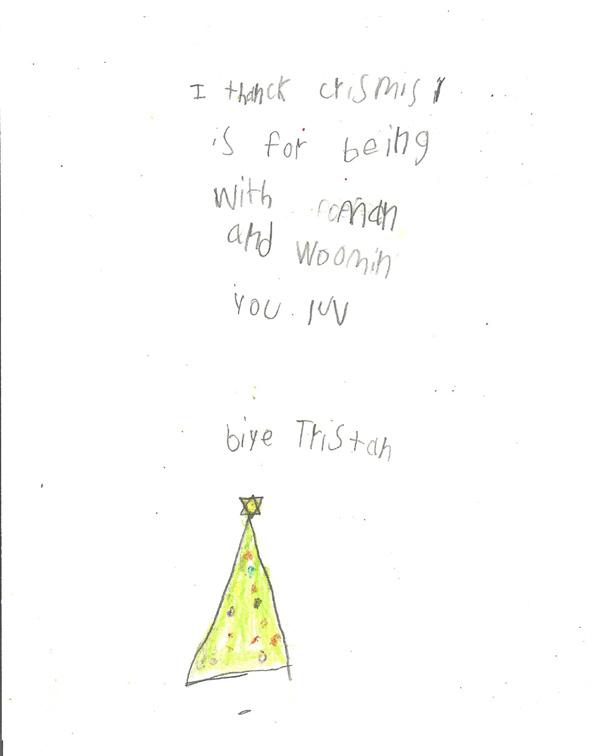 I thanck crismis
is for being
with roman
and woomin
you. luv
biye Tristan